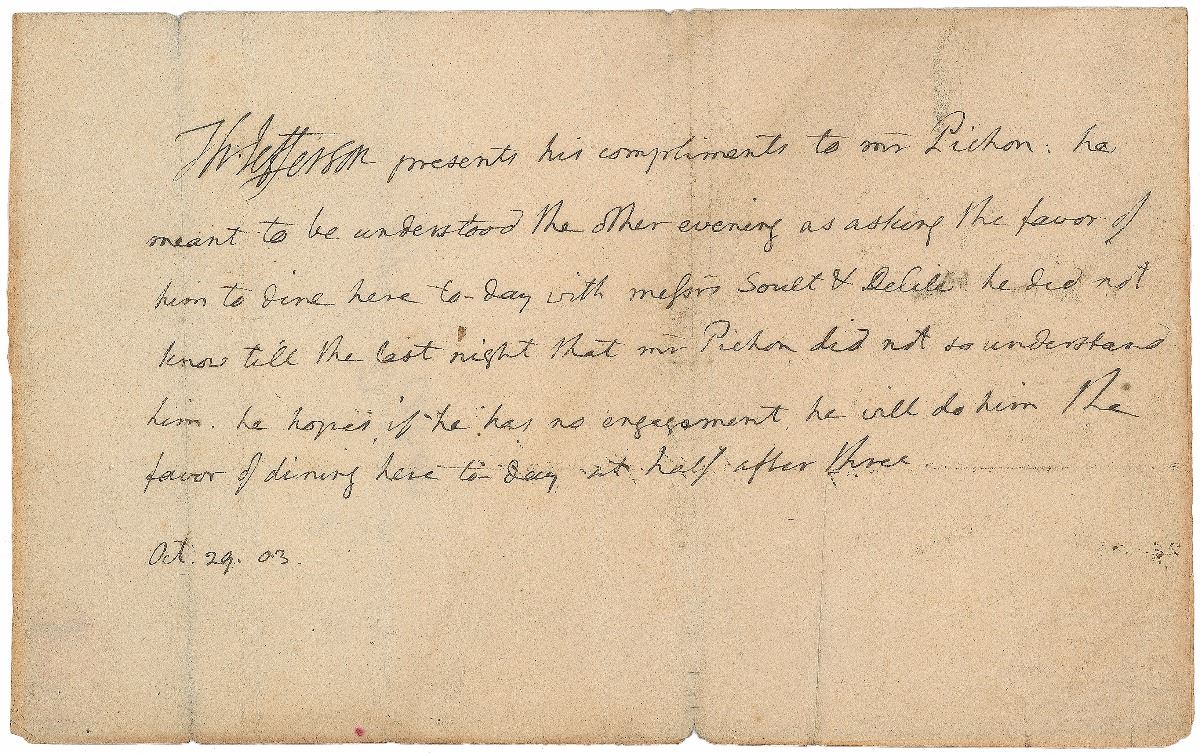 Th: Jefferson presents his compliments to mr Pichon. he
meant to be understood the other evening as asking the favor of
him to dine here to-day with messrs Soult & Delile he did not
know till the last night that mr Pichon did not so understand
him. he hopes, if he has no engagement, he will do him the
favor of dining here to-day at half after three
Oct. 29. 03.